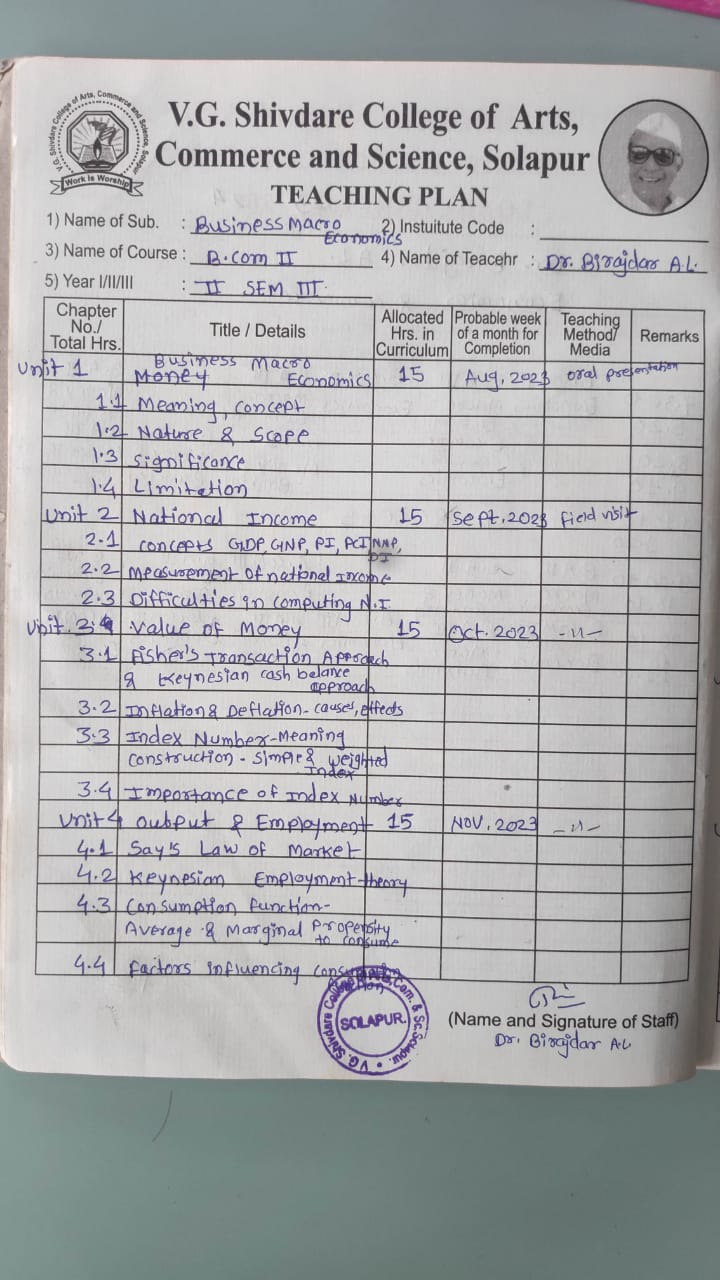 V.G. Shivdare College of Arts, Commerce and Science, Solapur
Work is Worship
V.G. Shivdare College of Arts,
Commerce and Science, Solapur
TEACHING PLAN
1) Name of Sub. : Business Macro Economics 2) Instuitute Code :
3) Name of Course : B.com II 4) Name of Teacehr : Dr. Birajdar A.L.
5) Year I/II/III : II SEM III
Chapter No./ Total Hrs. Title / Details Allocated Hrs. in Curriculum Probable week of a month for Completion Teaching Method/ Media Remarks
Unit 1 Business Macro Economics 15 Aug, 2023 oral presentation
Money
1.1 Meaning, concept
1.2 Nature & Scope
1.3 Significance
1.4 Limitation
Unit 2 National Income 15 Sept. 2023 field visit
2.1 concepts GDP, GNP, PI, PCI NNP, DI
2.2 Measurement of national Income
2.3 Difficulties in computing N.I.
Unit 3 Value of Money 15 Oct. 2023 -11-
3.1 Fisher's Transaction Approach
& Keynesian cash belance approach
3.2 Inflation & Deflation - causes, effects
3.3 Index Number - Meaning
construction - Simple & weighted Index
3.4 Importance of Index Number
Unit 4 output & Employment 15 NOV. 2023 -11-
4.1 Say's Law of Market
4.2 Keynesian Employment theory
4.3 Consumption function -
Average & Marginal Propensity to consume
4.4 factors influencing consumption function
V.G. Shivdare College of Arts, Com. & Sc. Solapur.
SOLAPUR.
(Name and Signature of Staff)
Dr. Birajdar A.L